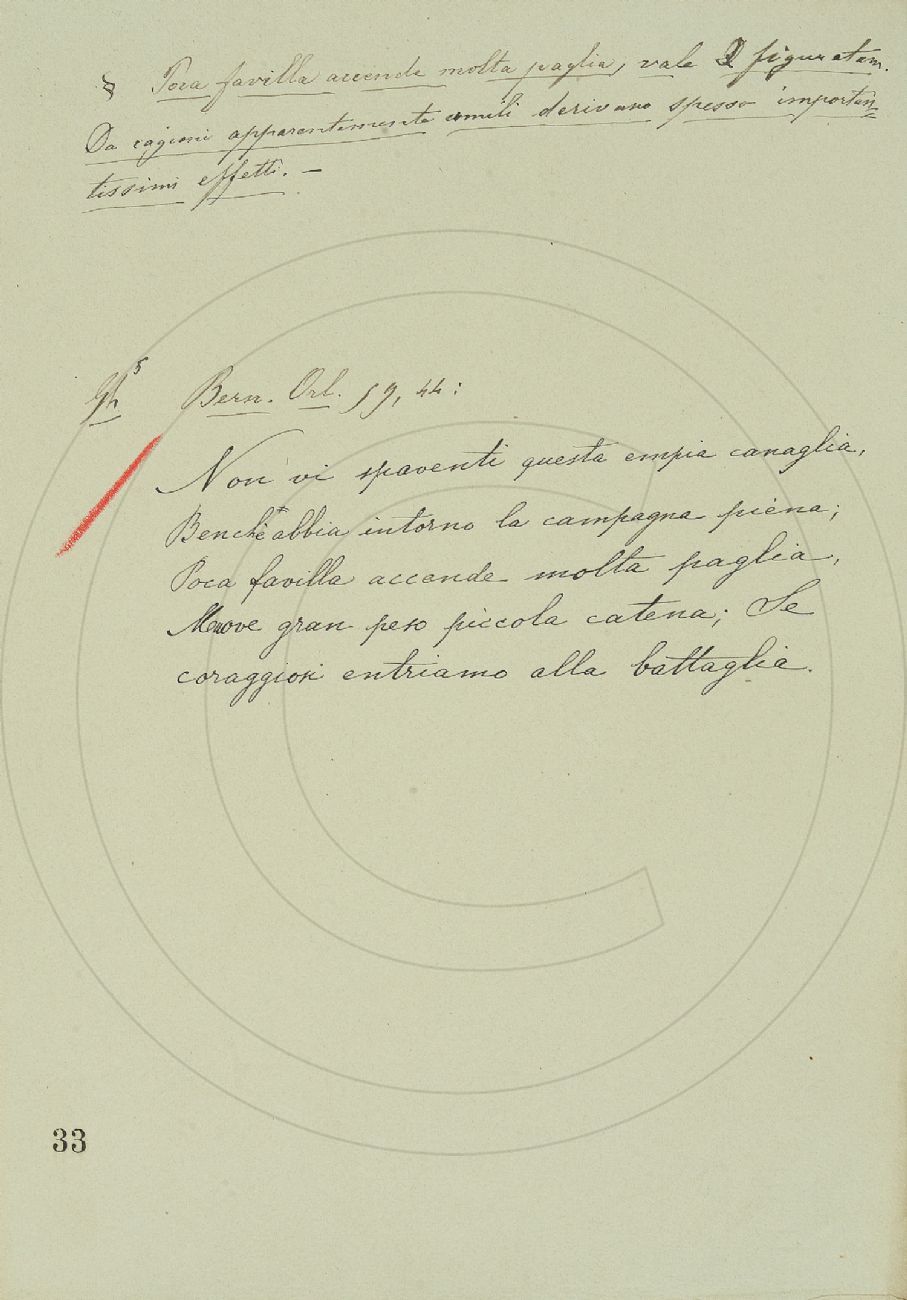 § Poca favilla accende molta paglia, vale figuratam.
Da cagioni apparentemente umili derivano spesso importan=
tissimi effetti. —
Gh.
Bern. Orl. 59, 44:
Non vi spaventi questa empia canaglia,
Benchè abbia intorno la campagna piena;
Poca favilla accende molta paglia,
Muove gran peso piccola catena; Se
coraggiosi entriamo alla battaglia.
33